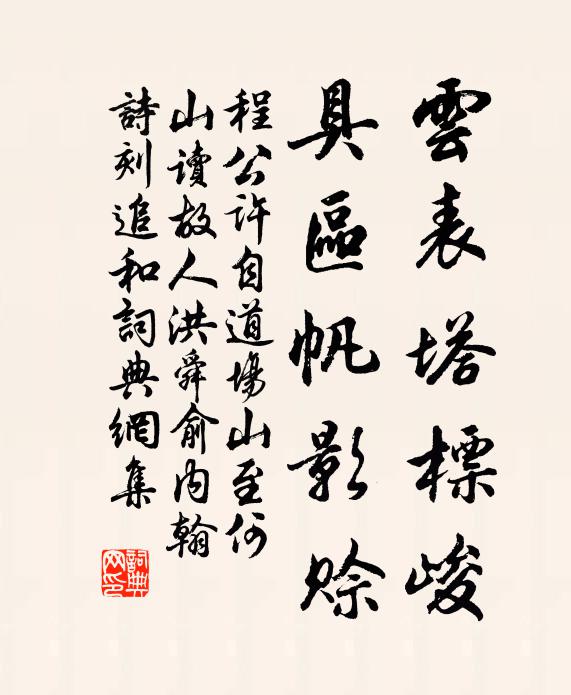 雲表塔標峻
具區帆影賒
程公許自道場山至何
山讀故人洪舜俞內翰
詩刻追和詞典網集
詞典
网印